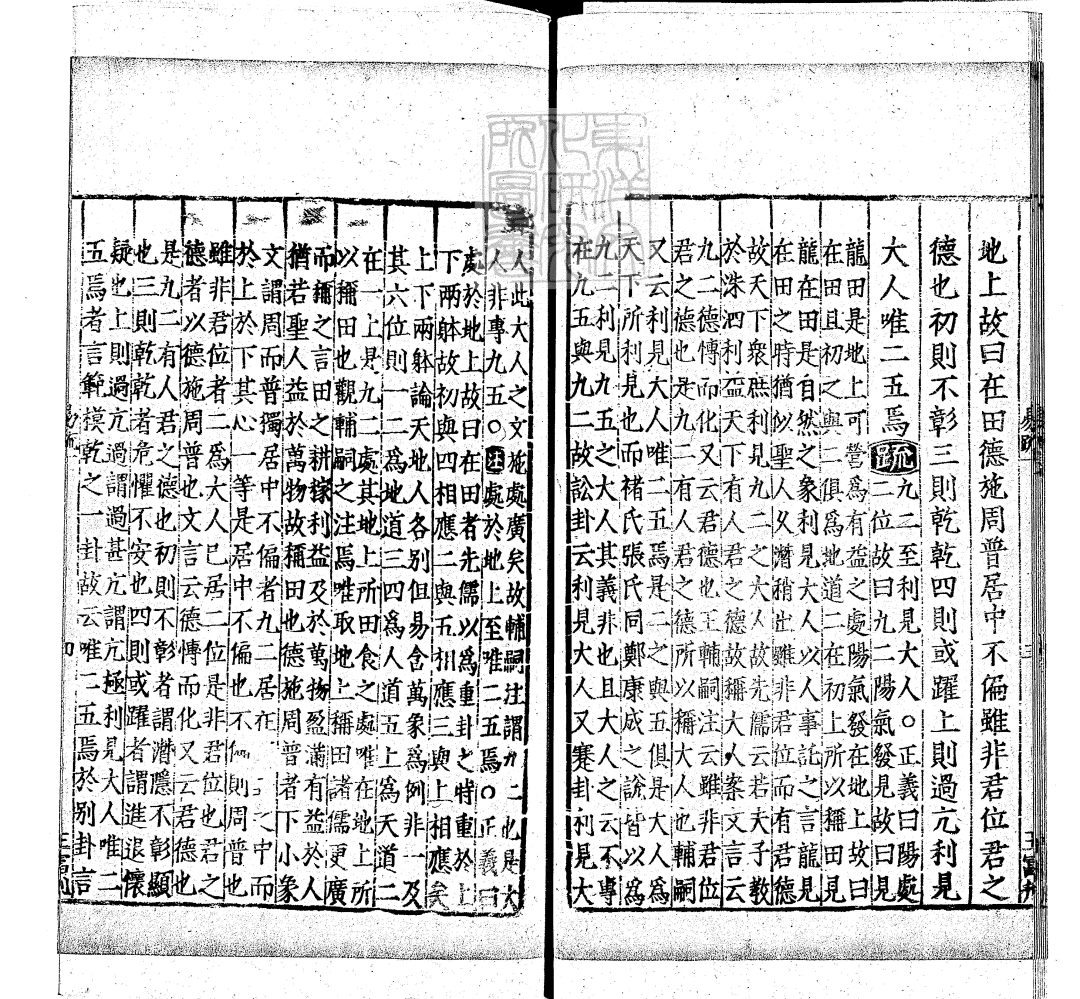 地上故曰在田德施周普居中不偏雖非君位君之
德也初則不彰三則乾乾四則或躍上則過亢利見
大人唯二五焉疏九二至利見大人○正義曰陽處
二位故曰九二陽氣發見故曰見
龍田是地上可營爲有益之處陽氣發在地上故曰
在田且初之與二俱爲地道二在初上所以稱田見
龍在田是自然之象利見大人以人事託之言龍見
在田之時猶似聖人久潛稍出雖非君位而有君德
故天下衆庶利見九二之大人故先儒云若夫子教
於洙泗利益天下有人君之德故稱大人案文言云
九二德愽而化又云君德也王輔嗣注云雖非君位
君之德也是九二有人君之德所以稱大人也輔嗣
又云利見大人唯二五焉是二之與五俱是大人爲
天下所利見也而褚氏張氏同鄭康成之說皆以爲
九二利見九五之大人其義非也且大人之云不專
在九五與九二故訟卦云利見大人又蹇卦利見大
人此大人之文施處廣矣故輔嗣注謂九二也是大
人非專九五○注處於地上至唯二五焉○正義曰
處於地上故曰在田者先儒以爲重卦之時重於上
下兩躰故初與四相應二與五相應三與上相應矣
上下兩躰論天地人各別但易含萬象爲例非一及
其六位則一二爲地道三四爲人道五上爲天道二
在一上是九二處其地上所田食之處唯在地上所
以稱田也觀輔嗣之注焉唯取地上稱田諸儒更廣
而稱之言田之耕稼利益及於萬物盈滿有益於人
猶若聖人益於萬物故稱田也德施周普者下小象
文謂周而普獨居中不偏者九二居在之中而
於上於下其心一等是居中不偏也不偏則周普也
雖非君位者二爲大人已居二位是非君位也君之
德者以德施周普也文言云德愽而化又云君德也
是九二有人君之德也初則不彰者謂潛隱不彰顯
也三則乾乾者危懼不安也四則或躍者謂進退懷
疑也上則過亢過謂過甚亢謂亢極利見大人唯二
五焉者言範模乾之一卦故云唯二五焉於別卦言